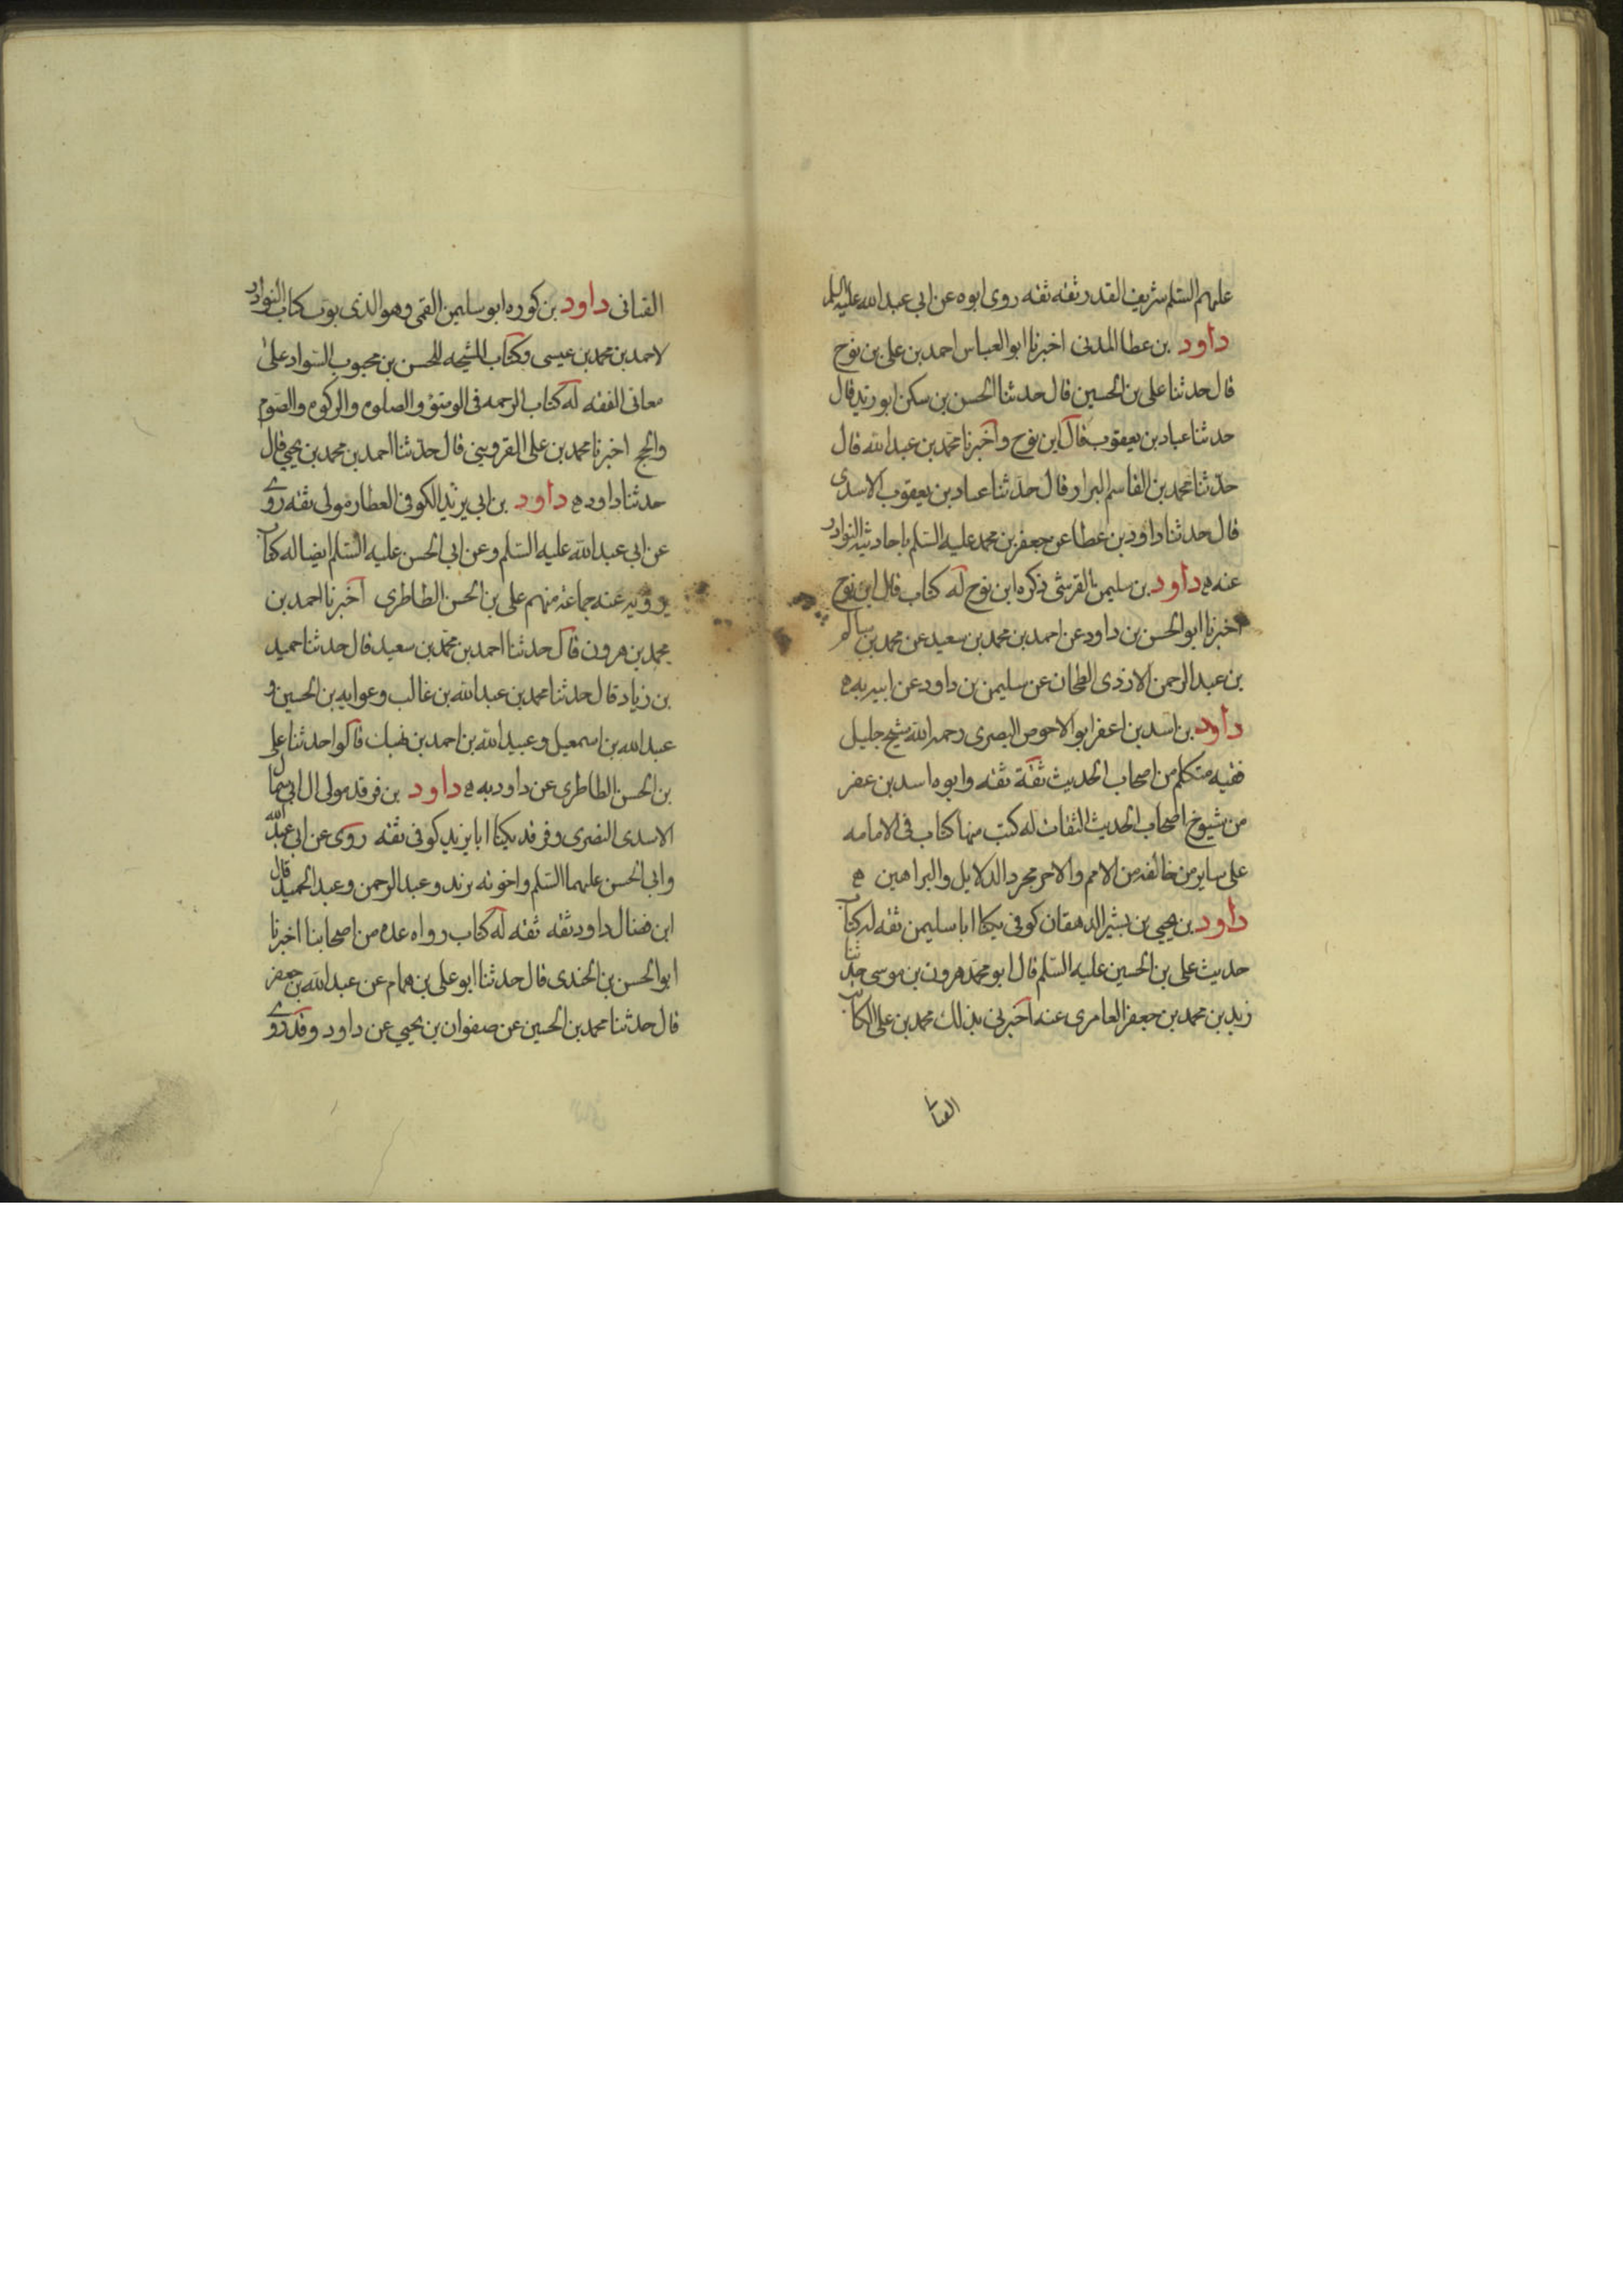 علیهم السّلم شریف القدر ثقه ثقه روی ابوه عن ابی عبد الله علیه السلم
داود بن عطا المدنی اخبرنا ابو العباس احمد بن علی بن نوح
قال حدثنا علی بن الحسین قال حدثنا الحسن بن سکن ابو زید قال
حدثنا عباد بن یعقوب قال ابن نوح واخبرنا محمد بن عبد الله قال
حدثنا محمد بن القاسم البزاز قال حدثنا عباد بن یعقوب الاسدی
قال حدثنا داود بن عطا عن جعفر بن محمد علیه السّلم باحادیثه النوادر
عنه ه داود بن سلیمن القرشی ذکره ابن نوح له کتاب قال ابن نوح
اخبرنا ابو الحسن بن داود عن احمد بن محمد بن سعید عن محمد بن سالم
بن عبد الرحمن الازدی الطحان عن سلیمن بن داود عن ابیه به ه
داود بن اسد بن اعفر ابو الاحوص البصری رحمه الله شیخ جلیل
فقیه متکلم من اصحاب الحدیث ثقة ثقه وابوه اسد بن عفر
من شیوخ اصحاب الحدیث الثقات له کتب منها کتاب فی الامامه
علی سایر من خالفه من الامم والاخر مجرد الدلایل والبراهین ه
داود بن یحیی بن بشیر الدهقان کوفی یکنا ابا سلیمن ثقه له کتاب
حدیث علی بن الحسین علیه السّلم قال ابو محمد هرون بن موسی حدثنا
زید بن محمد بن جعفر العامری عنه اخبرنی بذلک محمد بن علی الکاتب
القنانی
القنانی داود بن کوره ابو سلیمن القمی وهو الذی بوّب کتاب النوادر
لاحمد بن محمد بن عیسی وکتاب المشیخه للحسن بن محبوب السّواد علی
معانی الفقه له کتاب الرحمه فی الوضوء والصلوه والزکوه والصّوم
والحج اخبرنا محمد بن علی القزوینی قال حدثنا احمد بن محمد بن یحیی قال
حدثنا داود ه داود بن ابی یزید الکوفی العطار مولی ثقه روی
عن ابی عبد الله علیه السّلم وعن ابی الحسن علیه السّلم ایضا له کتاب
یرویه عنه جماعة منهم علی بن الحسن الطاطری اخبرنا احمد بن
محمد بن هرون قال حدثنا احمد بن محمد بن سعید قال حدثنا حمید
بن زیاد قال حدثنا محمد بن عبد الله بن غالب وعوابه بن الحسین و
عبد الله بن اسمعیل وعبید الله بن احمد بن نهیک قالوا حدثنا علی
بن الحسن الطاطری عن داود به ه داود بن فرقد مولی ال ابی سمال
الاسدی النصری وفرقد یکنا ابا یزید کوفی ثقه روی عن ابی عبد الله
وابی الحسن علیهما السّلم واخوته یزید وعبد الرحمن وعبد الحمید قال
ابن فضال داود ثقه ثقه له کتاب رواه عده من اصحابنا اخبرنا
ابو الحسن بن الجندی قال حدثنا ابو علی بن همام عن عبد الله بن جعفر
قال حدثنا محمد بن الحسین عن صفوان بن یحیی عن داود وقد روی